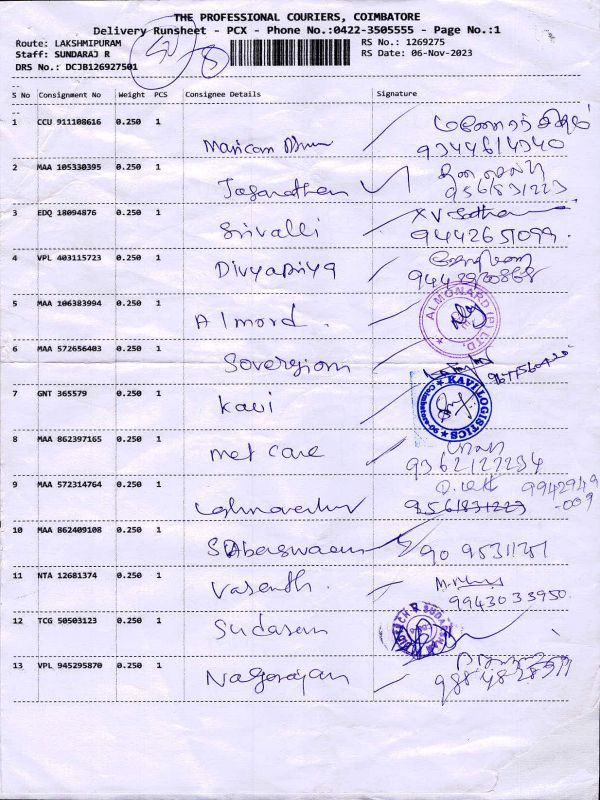 THE PROFESSIONAL COURIERS, COIMBATORE
Delivery Runsheet - PCX - Phone No.:0422-3505555 - Page No.:1
Route: LAKSHMIPURAM RS No.: 1269275
Staff: SUNDARAJ R RS Date: 06-Nov-2023
DRS No.: DCJB126927501
S No Consignment No Weight PCS Consignee Details Signature
1 CCU 911108616 0.250 1
9344614340
2 MAA 105330395 0.250 1 Jaganathan
9561831223
3 EDQ 18094876 0.250 1 Srivalli
9442651099
4 VPL 403115723 0.250 1 Divyapriya
5 MAA 106383994 0.250 1 Almord
ALMONARD (P) LTD
6 MAA 572656403 0.250 1 Sovergiom
7 GNT 365579 0.250 1 Kavi
KAVI LOGISTICS
8 MAA 862397165 0.250 1 met care
9362127234
9 MAA 572314764 0.250 1
9942949
9561831223 -009
10 MAA 862409108 0.250 1
11 NTA 12681374 0.250 1 Vasenth
9943033950
12 TCG 50503123 0.250 1 Sudasem
13 VPL 945295870 0.250 1 Nagarajan